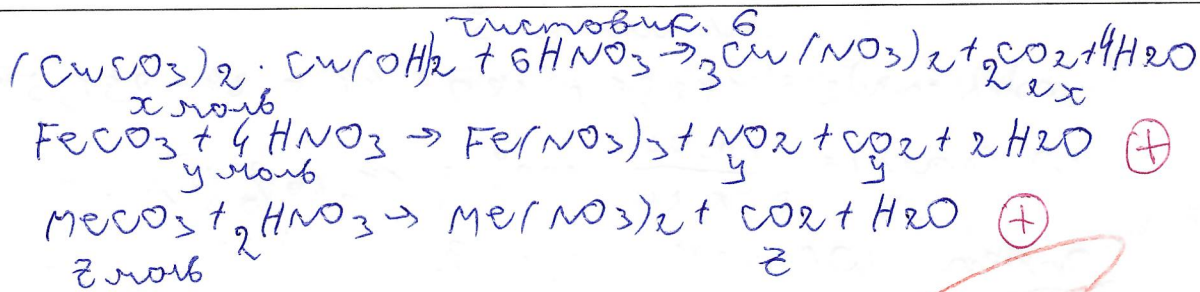 чистовик. 6
(CuCO3)2 · Cu(OH)2 + 6HNO3 → 3Cu(NO3)2 + 2CO2 + 4H2O
x моль 2x
FeCO3 + 4HNO3 → Fe(NO3)3 + NO2 + CO2 + 2H2O +
y моль y y
MeCO3 + 2HNO3 → Me(NO3)2 + CO2 + H2O +
z моль z